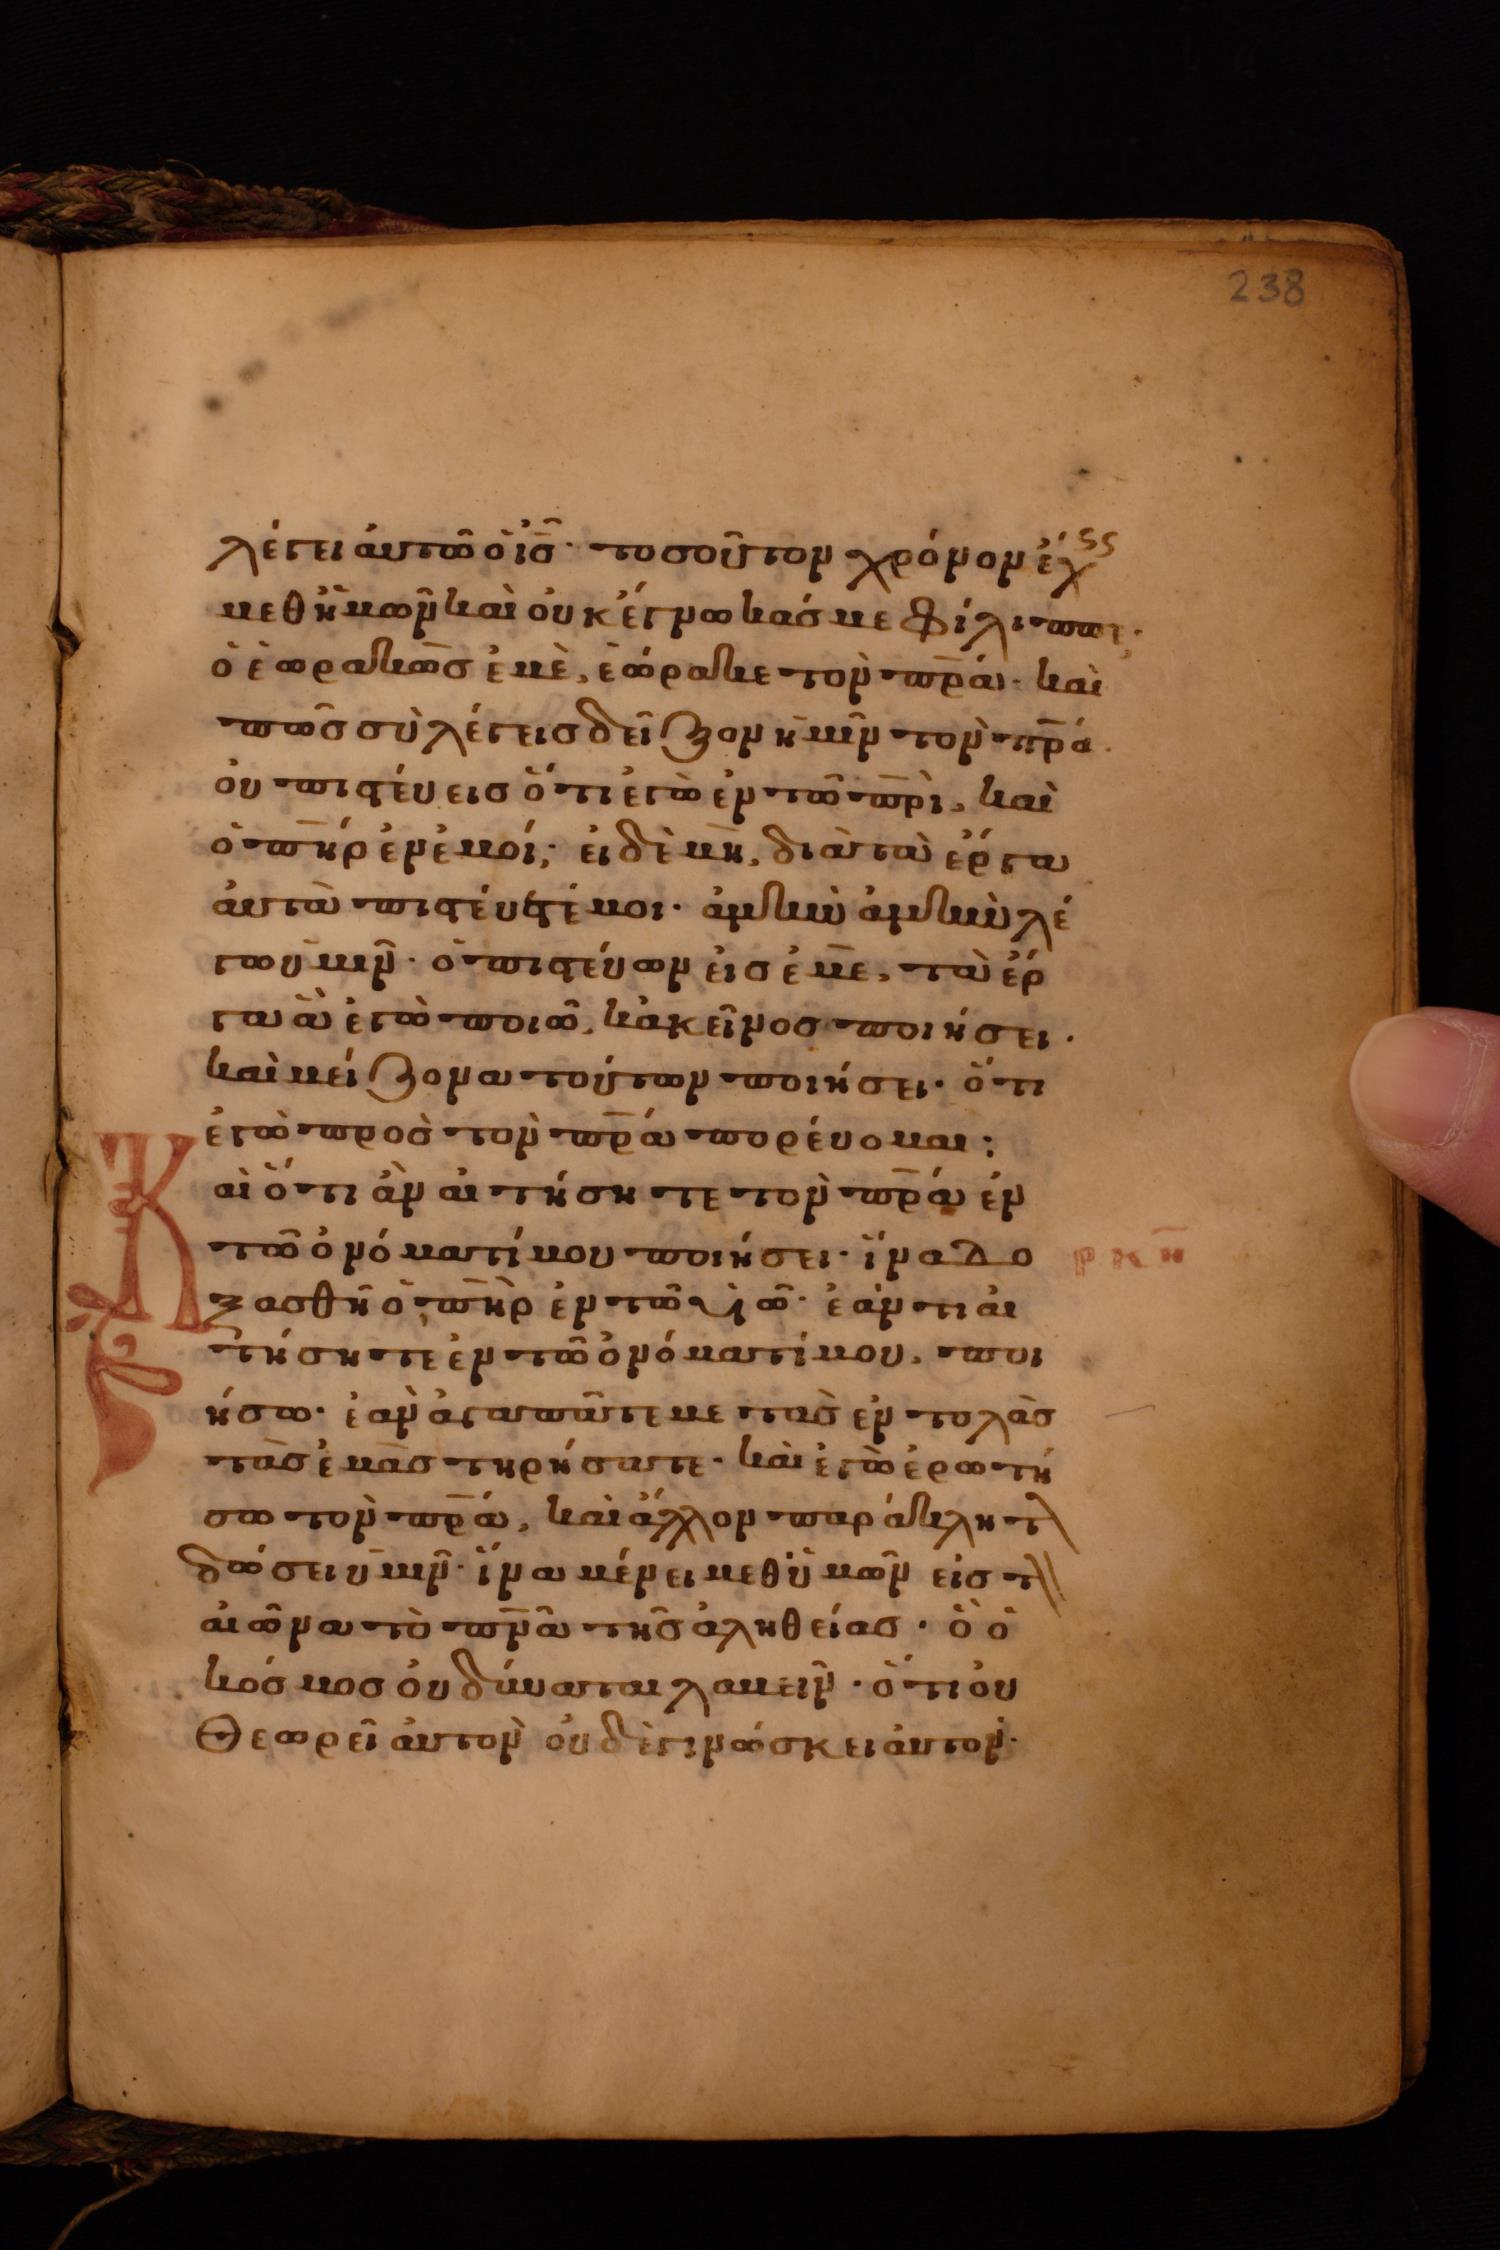 238
λέγει ἀυτῶ ὁ ι̅ς̅· τοσοῦτον χρόνον ἔχ
μεθ ἡμῶν καὶ ὀυκ ἔγνωκάς με φίλιππε·
ὁ ἑωρακὼς ἐμὲ, ἑώρακε τὸν π̅ρ̅α̅· καὶ
πῶς σὺ λέγεις δεῖξον ἡμῖν τὸν π̅ρ̅α̅·
ὀυ πιστέυεις ὅτι ἐγὼ ἐν τῶ π̅ρ̅ι̅, καὶ
ὁ π̅η̅ρ̅ ἐν ἐμοί; ἐι δὲ μὴ, διὰ τὰ ἔργα
ἀυτὰ πιστέυετέ μοι· ἀμὴν ἀμὴν λέ
γω ὑμῖν· ὁ πιστέυων ἐις ἐμὲ, τὰ ἔρ
γα ἃ ἐγὼ ποιῶ, κἀκεῖνος ποιήσει·
καὶ μείζονα τούτων ποιήσει· ὅτι
ἐγὼ πρὸς τὸν π̅ρ̅α̅ πορέυομαι;
Κ
αὶ ὅτι ἂν ἀιτήσητε τὸν π̅ρ̅α̅ ἐν
τῶ ὀνόματί μου ποιήσει· ἵνα δο
ξασθῆ ὁ π̅η̅ρ̅ ἐν τῶ υ̅ω̅· ἐάν τι ἀι
τήσητε ἐν τῶ ὀνόματί μου, ποι
ήσω· ἐὰν ἀγαπᾶτέ με τὰς ἐντολὰς
τὰς ἐμὰς τηρήσατε· καὶ ἐγὼ ἐρωτή
σω τὸν π̅ρ̅α̅, καὶ ἄλλον παράκλητ
δώσει ὑμῖν· ἵνα μένει μεθ ὑμῶν εἰς τ
ἀιῶνα τὸ π̅ν̅α̅ τῆς ἀληθείας· ὃ ὁ
κόσμος ὀυ δύναται λαβεῖν· ὅτι ὀυ
θεωρεῖ ἀυτὸν ὀυδὲ γινώσκει ἀυτόν·